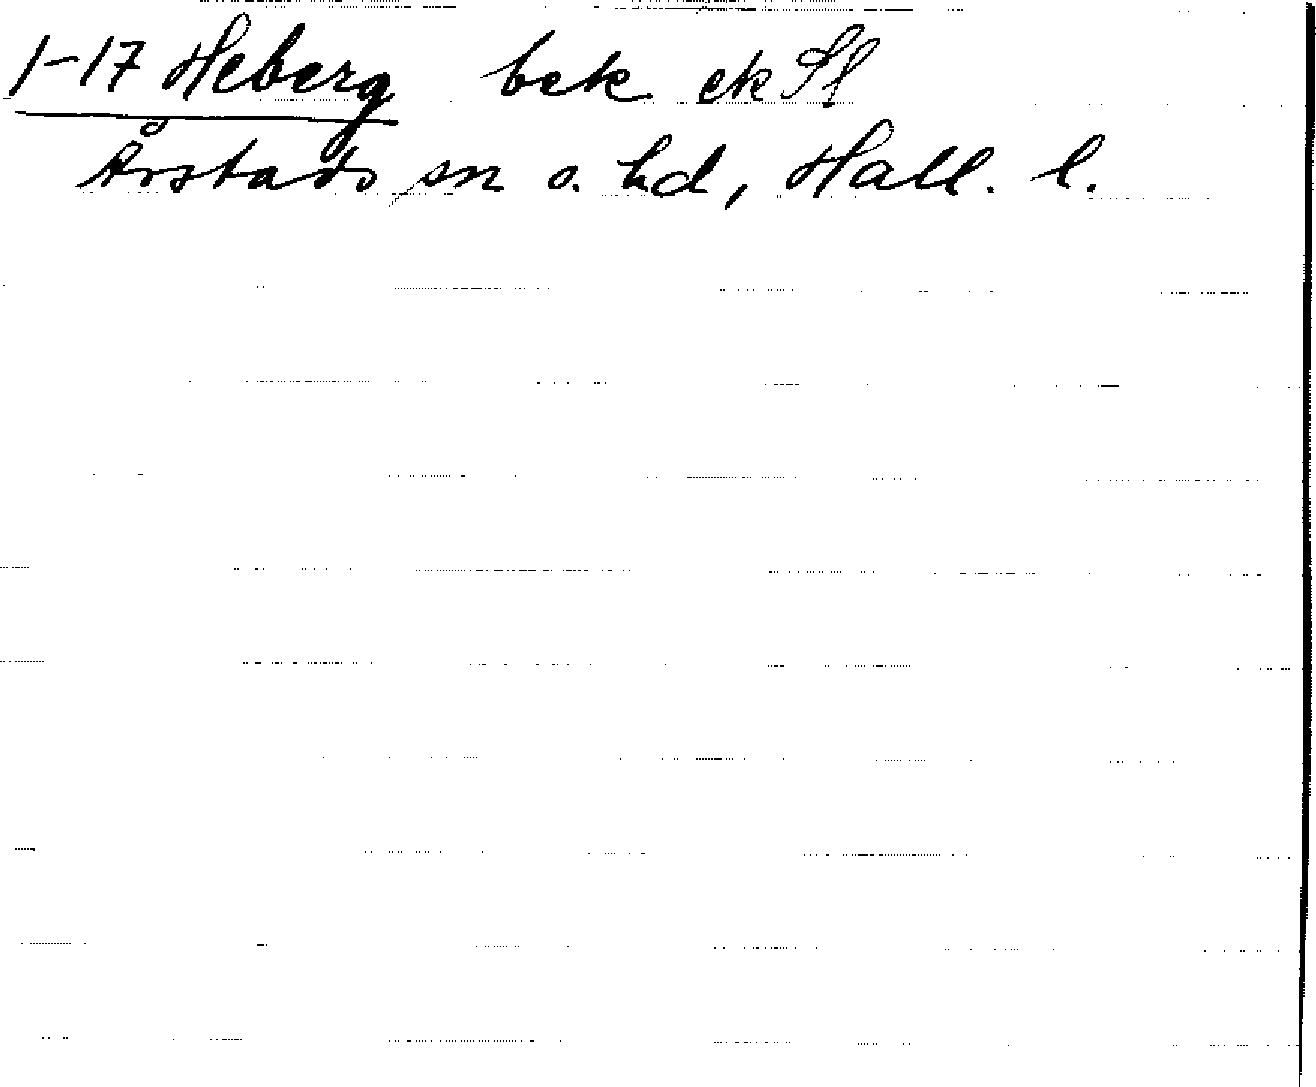 1-17 Heberg bek ek Sf
Årstads sn o. hd, Hall. l.